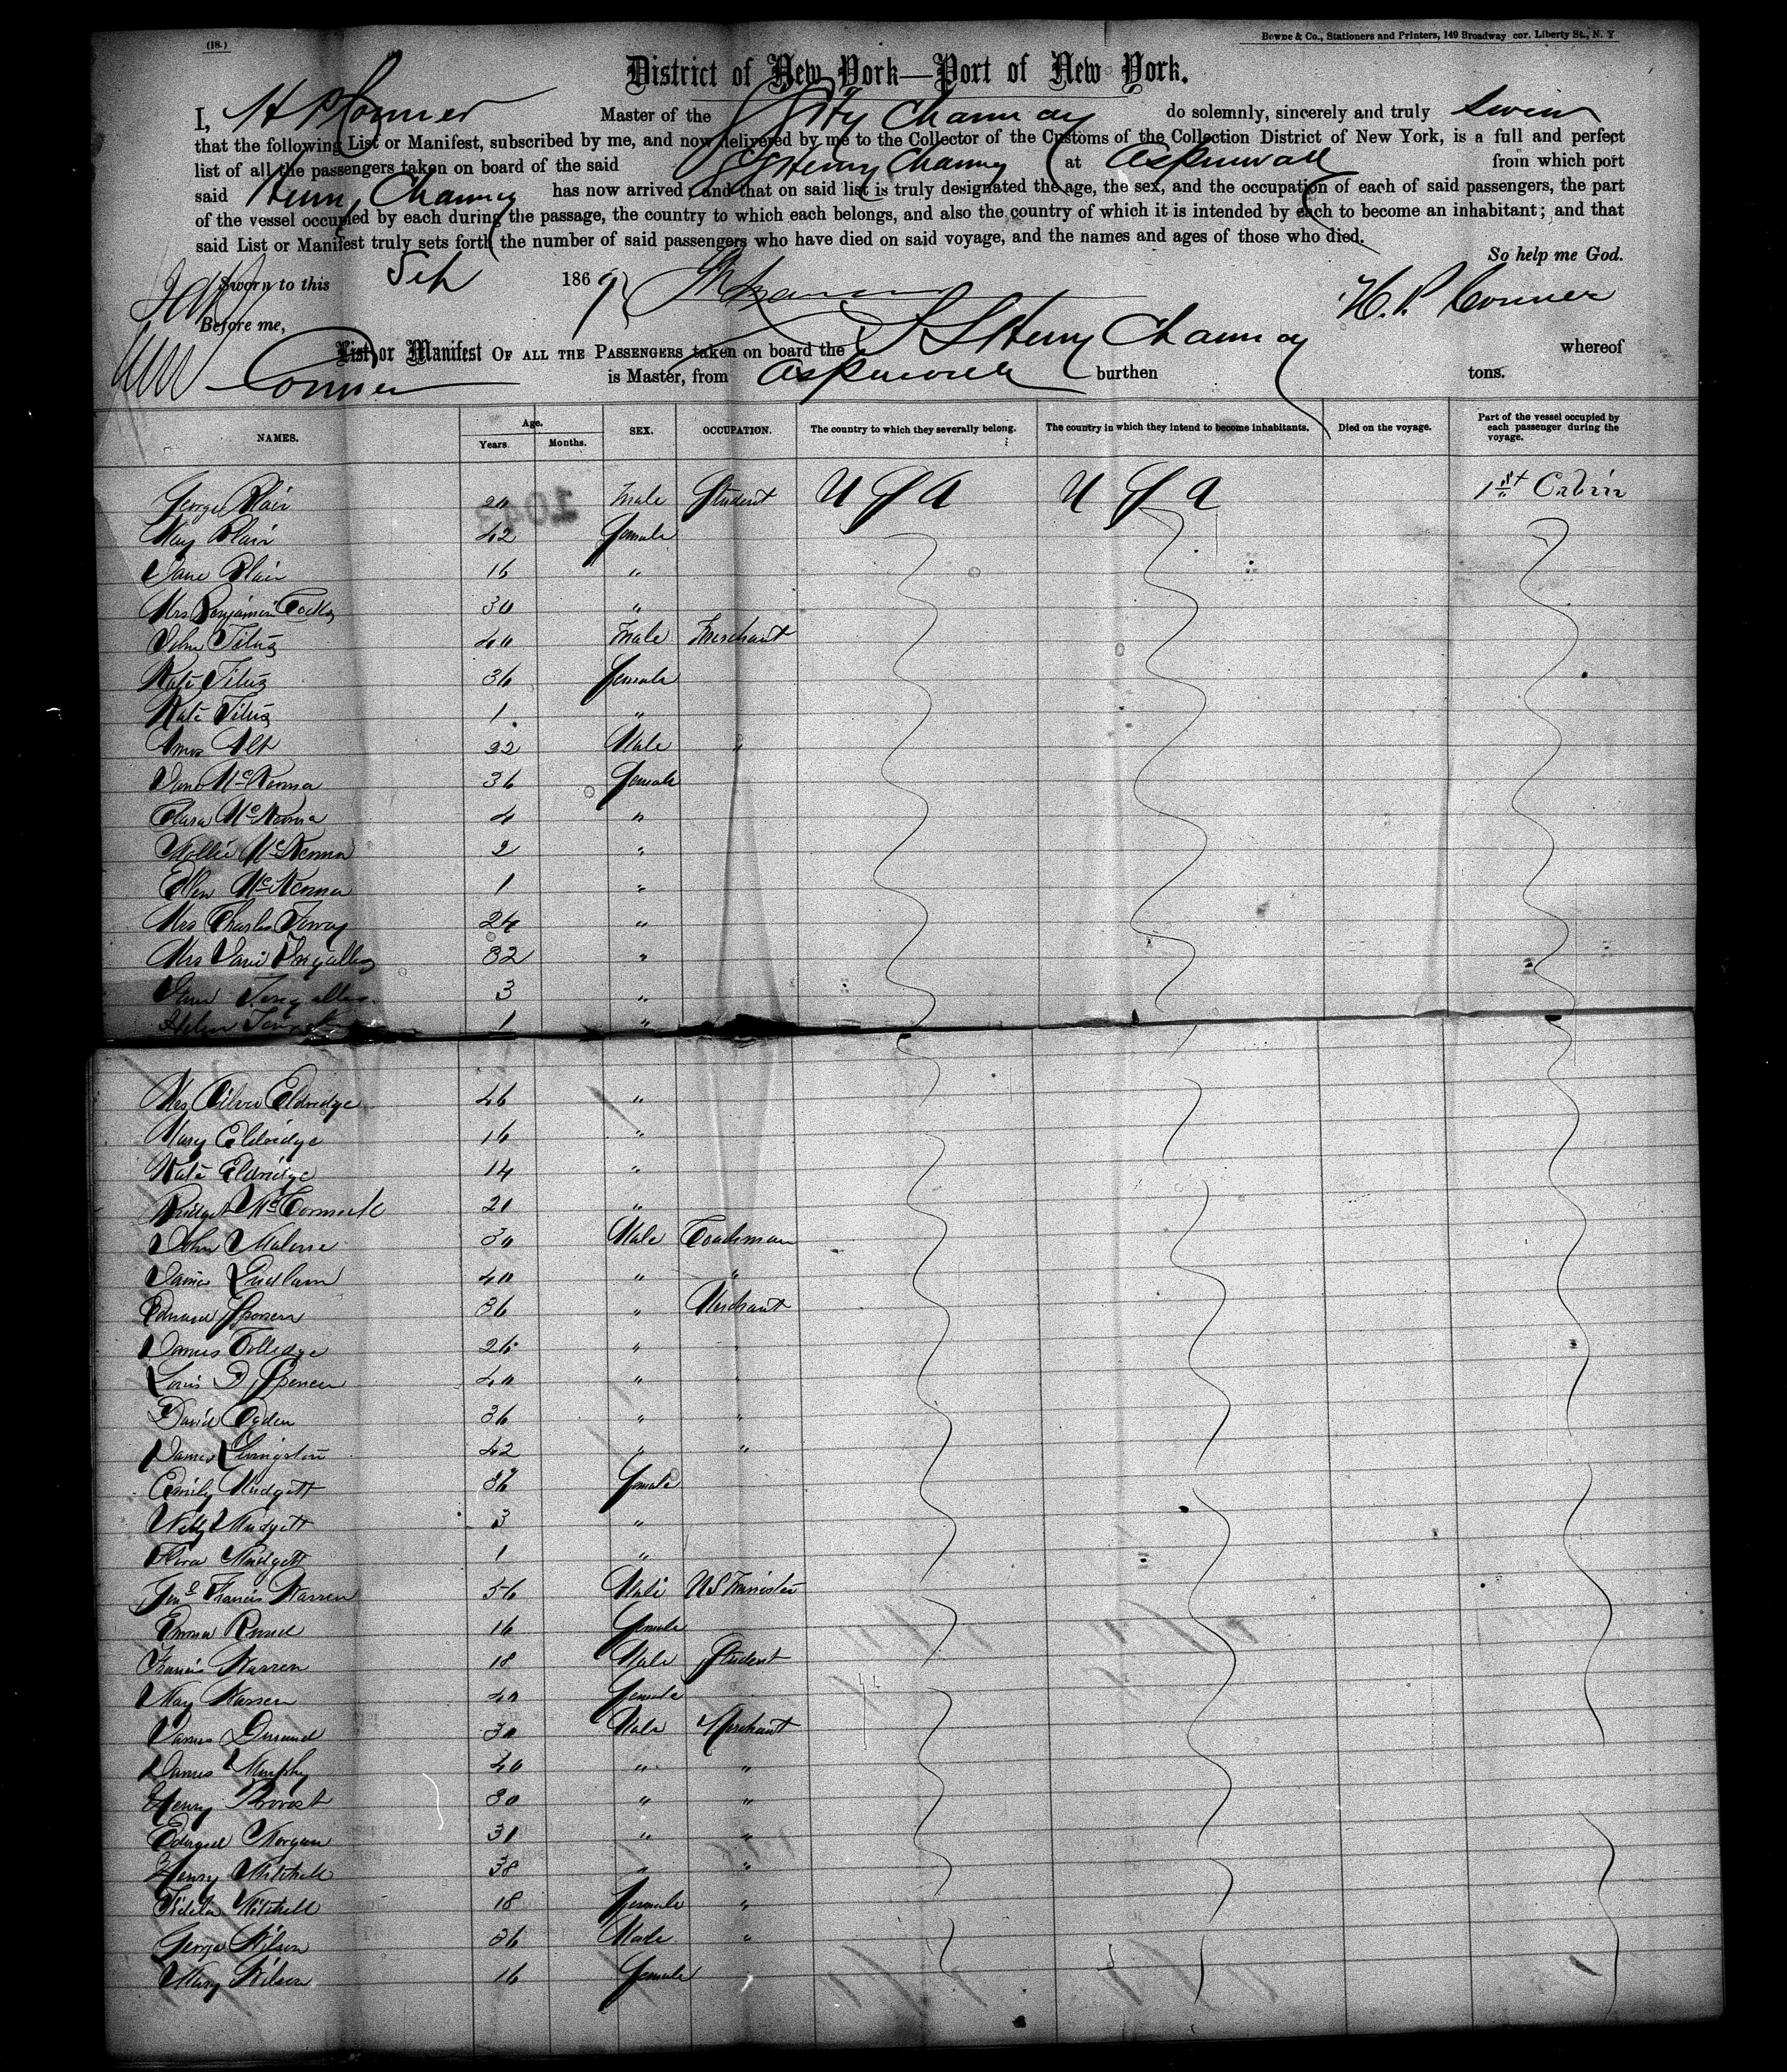 (18.)
Bowne & Co., Stationers and Printers, 149 Broadway cor. Liberty St., N. Y
District of New York—Port of New York.
I, H P Conner Master of the Hy Chauncey do solemnly, sincerely and truly swear
that the following List or Manifest, subscribed by me, and now delivered by me to the Collector of the Customs of the Collection District of New York, is a full and perfect
list of all the passengers taken on board of the said SS Henry Chauncey at Aspinwall from which port
said Henry Chauncey has now arrived; and that on said list is truly designated the age, the sex, and the occupation of each of said passengers, the part
of the vessel occupied by each during the passage, the country to which each belongs, and also the country of which it is intended by each to become an inhabitant; and that
said List or Manifest truly sets forth the number of said passengers who have died on said voyage, and the names and ages of those who died.
So help me God.
Sworn to this 5th 1869
H. P. Conner
Before me,
List or Manifest OF ALL THE PASSENGERS taken on board the S S Henry Chauncey whereof
Conner is Master, from Aspinwall burthen tons.
NAMES. Age. Years. Months. SEX. OCCUPATION. The country to which they severally belong. The country in which they intend to become inhabitants. Died on the voyage. Part of the vessel occupied by each passenger during the voyage.
George Blair 20 Male Student U S A U S A 1st Cabin
May Blair 42 Female
Jane Blair 16 "
Mrs Benjamin 30 "
John Titus 40 Male Merchant
Kate Titus 36 Female
Kate Titus 1 "
Amos 32 Male "
Jane McKenna 36 Female
Clara McKenna 4 "
Mollie McKenna 2 "
Ellen McKenna 1 "
Mrs Charles 24 "
Mrs Ingalls 32 "
Ingalls 3 "
Helen 1 "
Mrs Oliver Eldridge 46 "
Mary Eldridge 16 "
Kate Eldridge 14 "
Bridget McCormick 21 "
John Malone 30 Male Coachman
James Ludlam 40 " "
Edward Spencer 36 " Merchant
James Colledge 26 " "
Louis D Spencer 40 " "
David Ogden 36 " "
James Livingston 42 " "
Emily Mudgett 36 Female
Nelly Mudgett 3 "
Flora Mudgett 1 "
Genl Francis Warren 56 Male U S Minister
Emma 16 Female
Francis Warren 18 Male Student
May Warren 40 Female
James Durand 30 Male Merchant
James Murphy 40 " "
Henry Provost 30 " "
Edward Morgan 31 " "
Henry Mitchell 38 " "
Fidelia Mitchell 18 Female "
George Wilson 36 Male "
Mary Wilson 16 Female